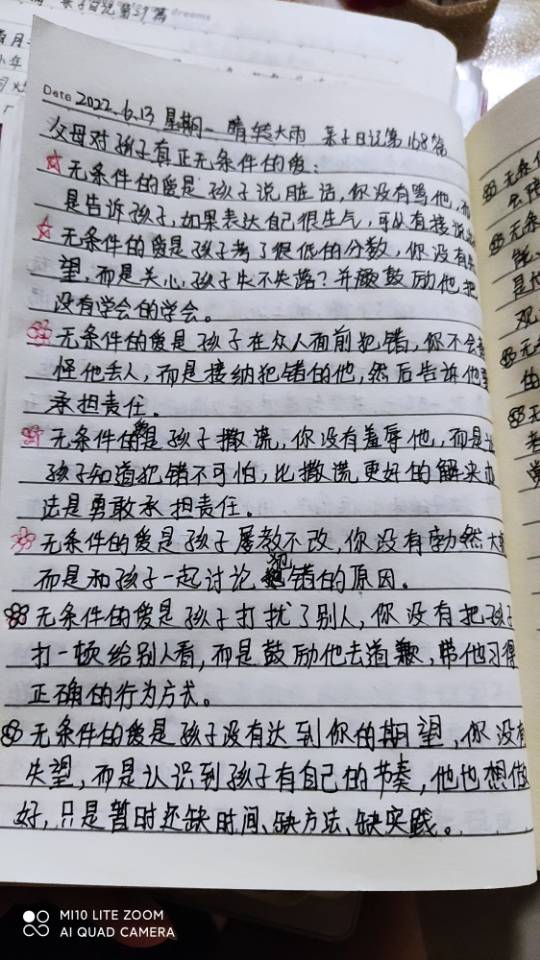 亲子日记第159篇
dreams
Date 2022.6.13 星期一 晴转大雨 亲子日记第168篇
父母对孩子真正无条件的爱:
无条件的爱是孩子说脏话,你没有骂他,而
是告诉孩子,如果表达自己很生气,可以有接说
无条件的爱是孩子考了很低的分数,你没有失
望,而是关心,孩子失不失落?并鼓励他把
没有学会的学会。
无条件的爱是孩子在众人面前犯错,你不会责
怪他丢人,而是接纳犯错的他,然后告诉他要
承担责任.
无条件的爱是孩子撒谎,你没有羞辱他,而是让
孩子知道犯错不可怕,比撒谎更好的解决办
法是勇敢承担责任.
无条件的爱是孩子屡教不改,你没有勃然大
而是和孩子一起讨论犯错的原因.
无条件的爱是孩子打扰了别人,你没有把孩子
打一顿给别人看,而是鼓励他去道歉,带他习得
正确的行为方式。
无条件的爱是孩子没有达到你的期望,你没有
失望,而是认识到孩子有自己的节奏,他也想做
好,只是暂时还缺时间、缺方法、缺实践。
MI10 LITE ZOOM
AI QUAD CAMERA